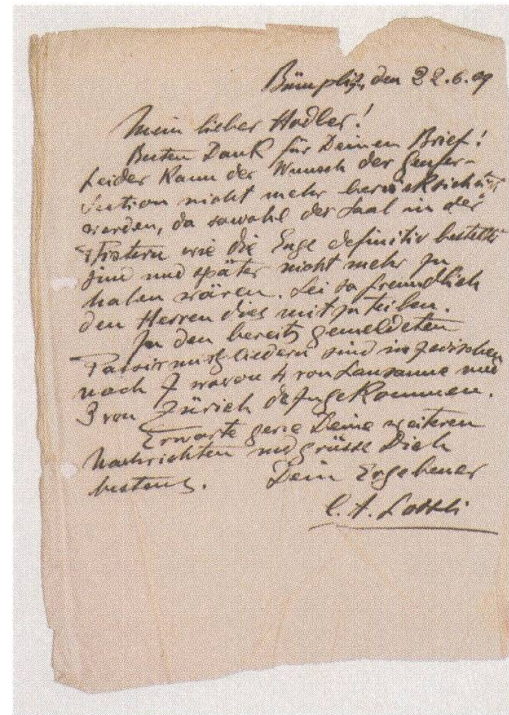 Bümpliz, den 22.6.09
Mein lieber Hodler!
Besten Dank für Deinen Brief!
Leider kann der Wunsch der Genfer-
Sektion nicht mehr berücksichtigt
werden, da sowohl der Saal in der
wie die Enge definitiv bestellt
sind und später nicht mehr zu
haben wären. Sei so freundlich
den Herren dies mitzuteilen.
Zu den bereits gemeldeten
Passivmitgliedern sind inzwischen
noch 7 wovon 4 von Lausanne und
3 von Zürich dazugekommen.
Erwarte gerne Deine weiteren
Nachrichten und grüsse Dich
bestens. Dein Ergebener
C. A. Loosli